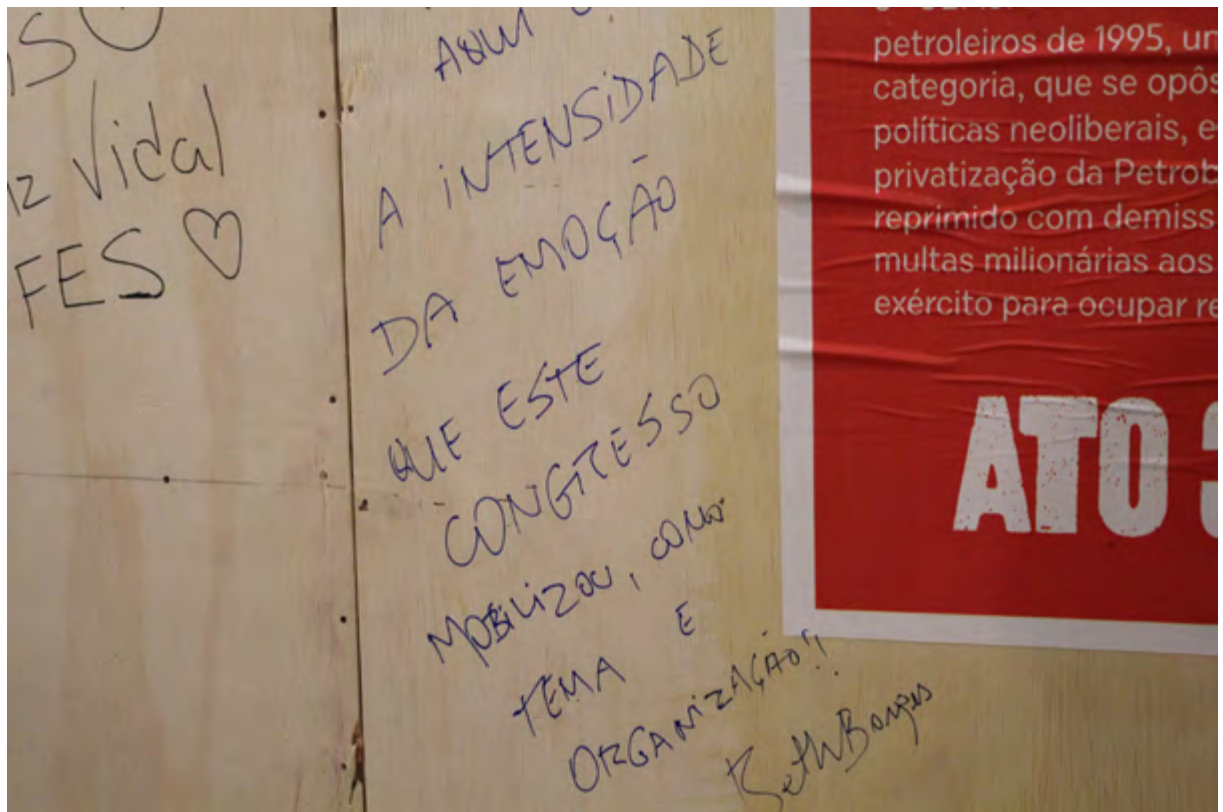 iz Vidal
FES ♡
AQUI
A INTENSIDADE
DA EMOÇÃO
QUE ESTE
CONGRESSO
MOBILIZOU, COMO
TEMA E
ORGANIZAÇÃO!!
Beth Borges
petroleiros de 1995, um
categoria, que se opôs
políticas neoliberais, e
privatização da Petrob
reprimido com demiss
multas milionárias aos
exército para ocupar re
ATO 3